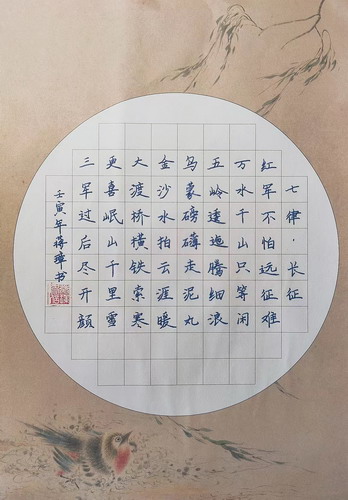 七律·长征
红军不怕远征难
万水千山只等闲
五岭逶迤腾细浪
乌蒙磅礴走泥丸
金沙水拍云涯暖
大渡桥横铁索寒
更喜岷山千里雪
三军过后尽开颜
壬寅年蒋璋书